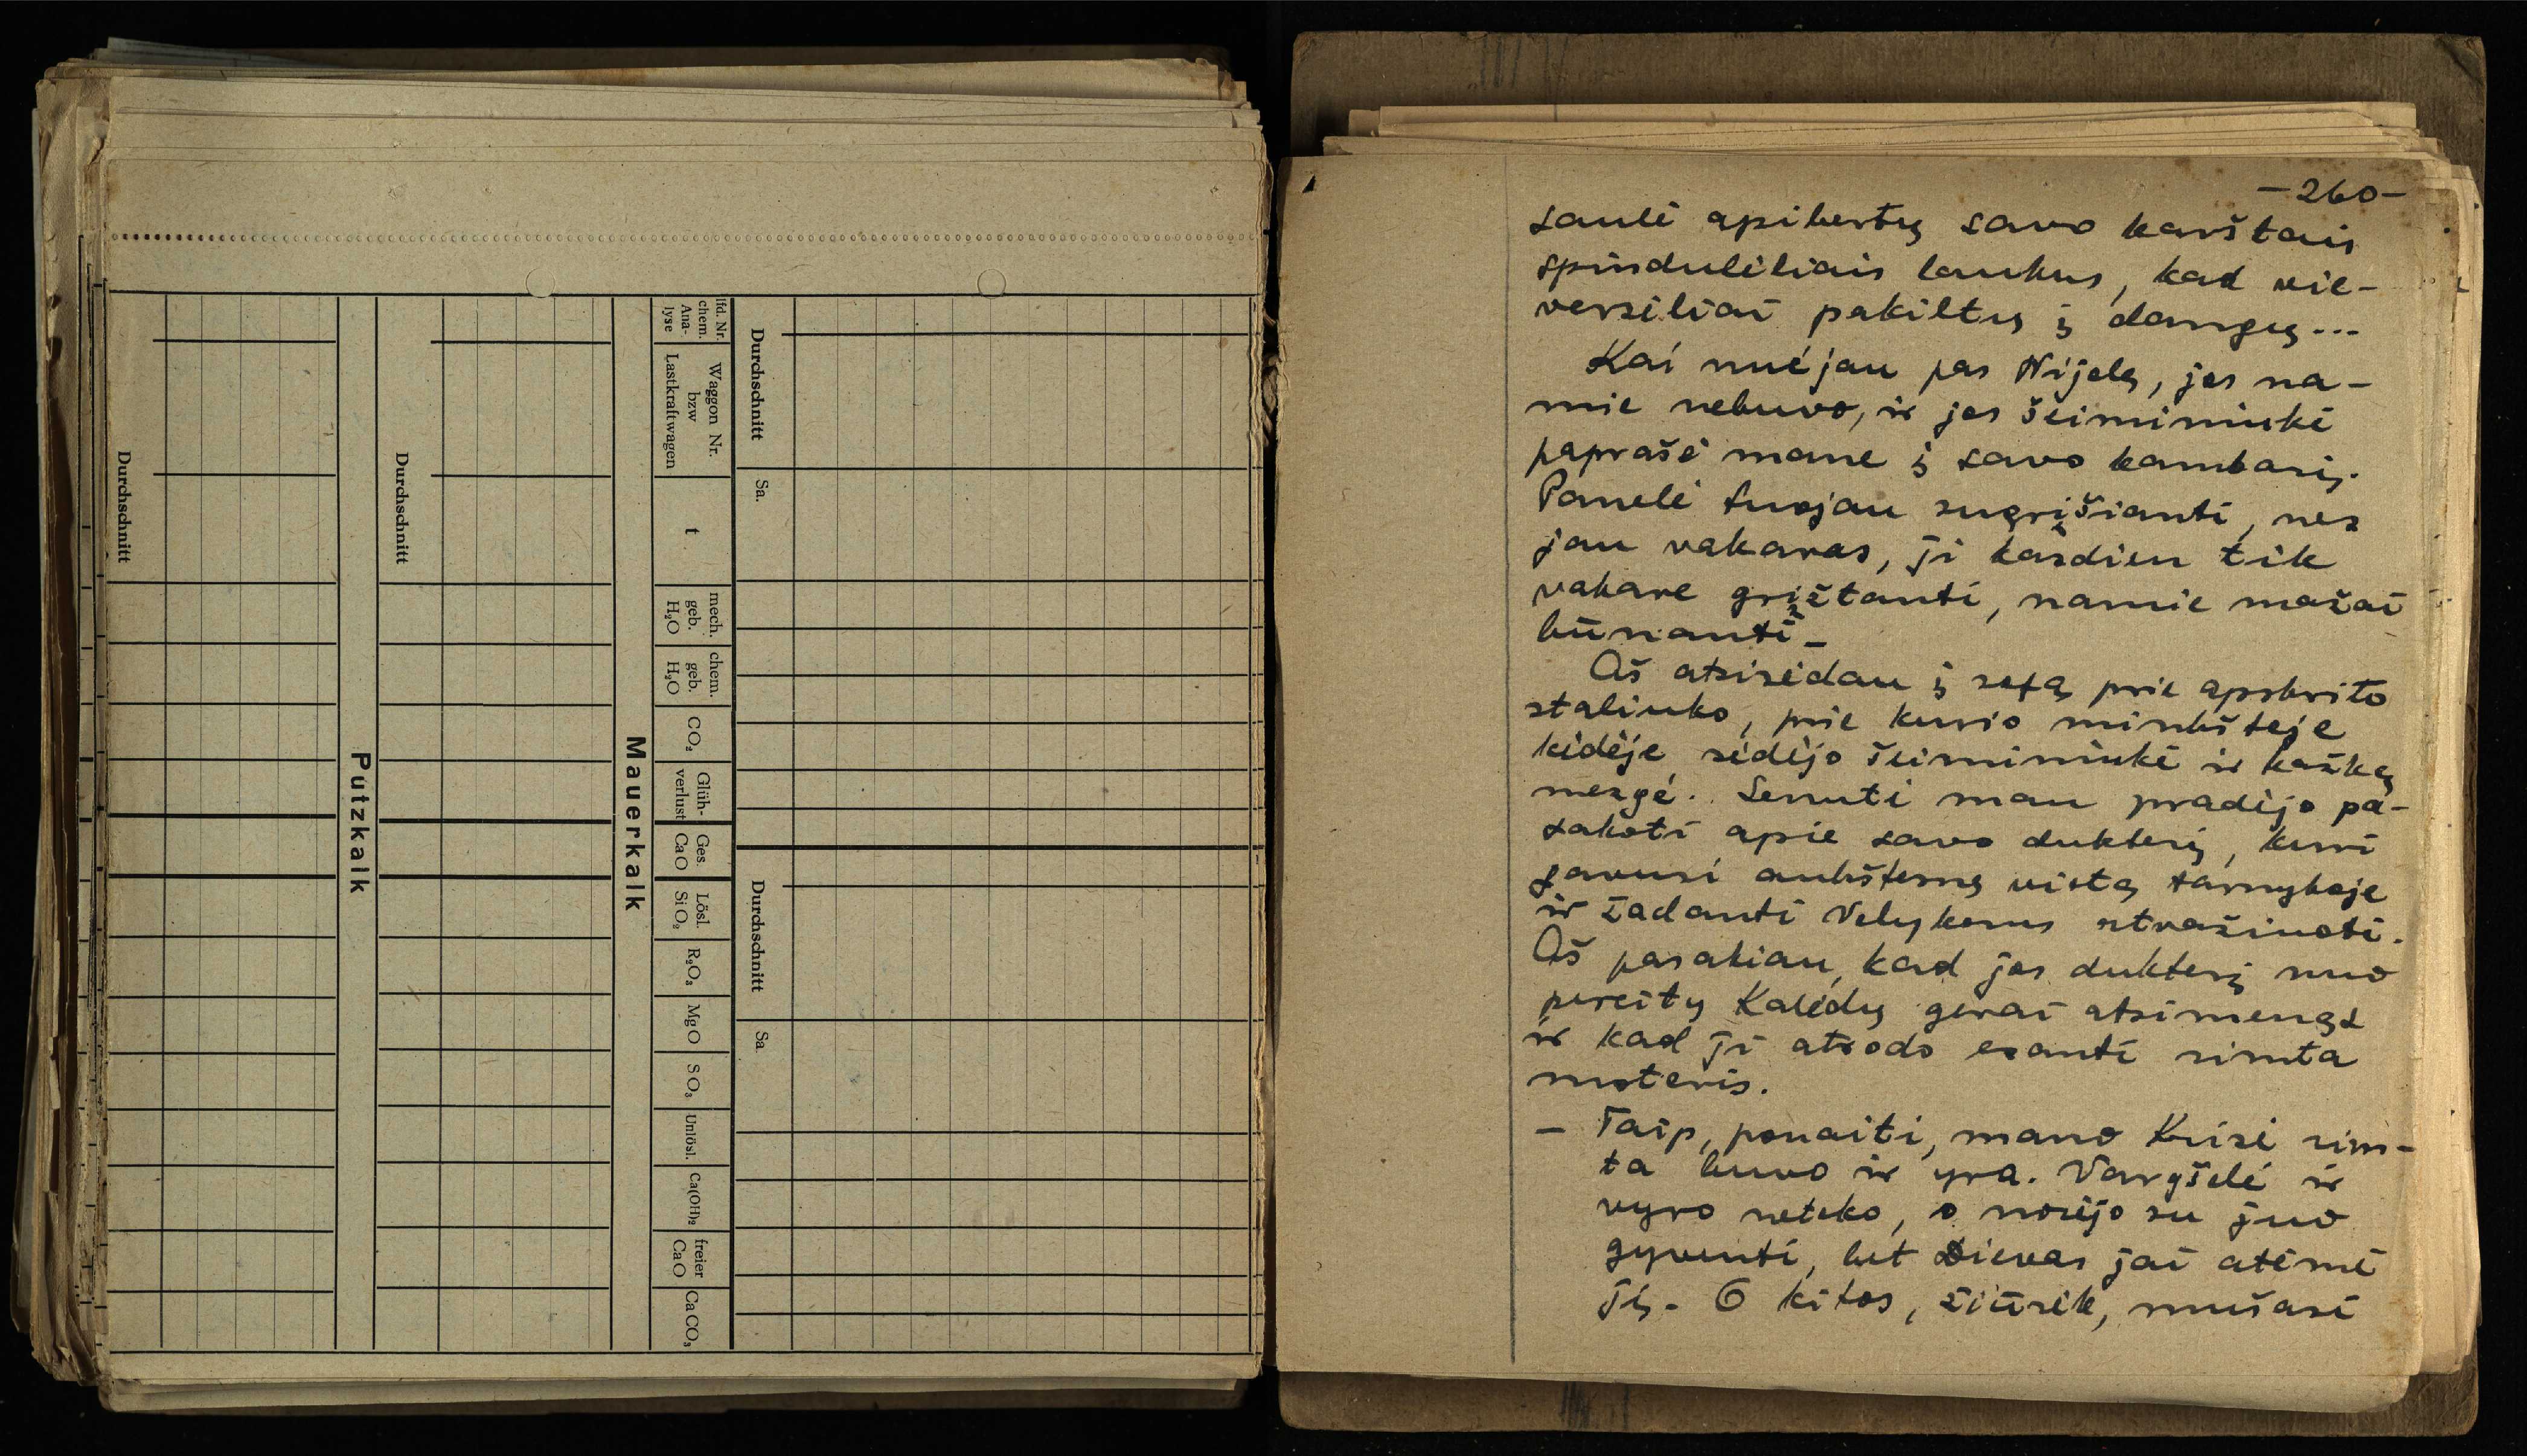 lfd. Nr.
chem.
Ana-
lyse
Waggon Nr.
bzw
Lastkraftwagen
t
mech.
geb.
H₂O
chem.
geb.
H₂O
CO₂
Glüh-
verlust
Ges.
CaO
Lösl.
SiO₂
R₂O₃
MgO
SO₃
Unlösl.
Ca(OH)₂
freier
CaO
CaCO₃
Durchschnitt
Sa.
Durchschnitt
Sa
Mauerkalk
Durchschnitt
Putzkalk
Durchschnitt
-260-
saulė apibertų savo karštais
spindulėliais laukus, kad vie-
versėliai pakiltų į dangų...
Kai nuėjau pas Nijolę, jos na-
mie nebuvo, ir jos šeimininkė
paprašė mane į savo kambarį.
Panelė tuojau sugrįšianti, nes
jau vakaras, ji kasdien tik
vakare grįžtanti, namie mažai
būnanti.
Aš atsisėdau į sofą prie apskrito
staliuko, prie kurio minkštoje
kėdėje sėdėjo šeimininkė ir kažką
mezgė. Senutė man pradėjo pa-
sakoti apie savo dukterį, kuri
gavusi aukštesnę vietą tarnyboje
ir žadanti Velykoms atvažiuoti.
Aš pasakiau, kad jos dukterį nuo
pereitų Kalėdų gerai atsimenąs
ir kad ji atrodo esanti rimta
moteris.
- Taip, ponaiti, mano Krizė rim-
ta buvo ir yra. Vargšelė ir
vyro neteko, o norėjo su juo
gyventi, bet Dievas jai atėmė
jį. O kitos, žiūrėk, mušasi